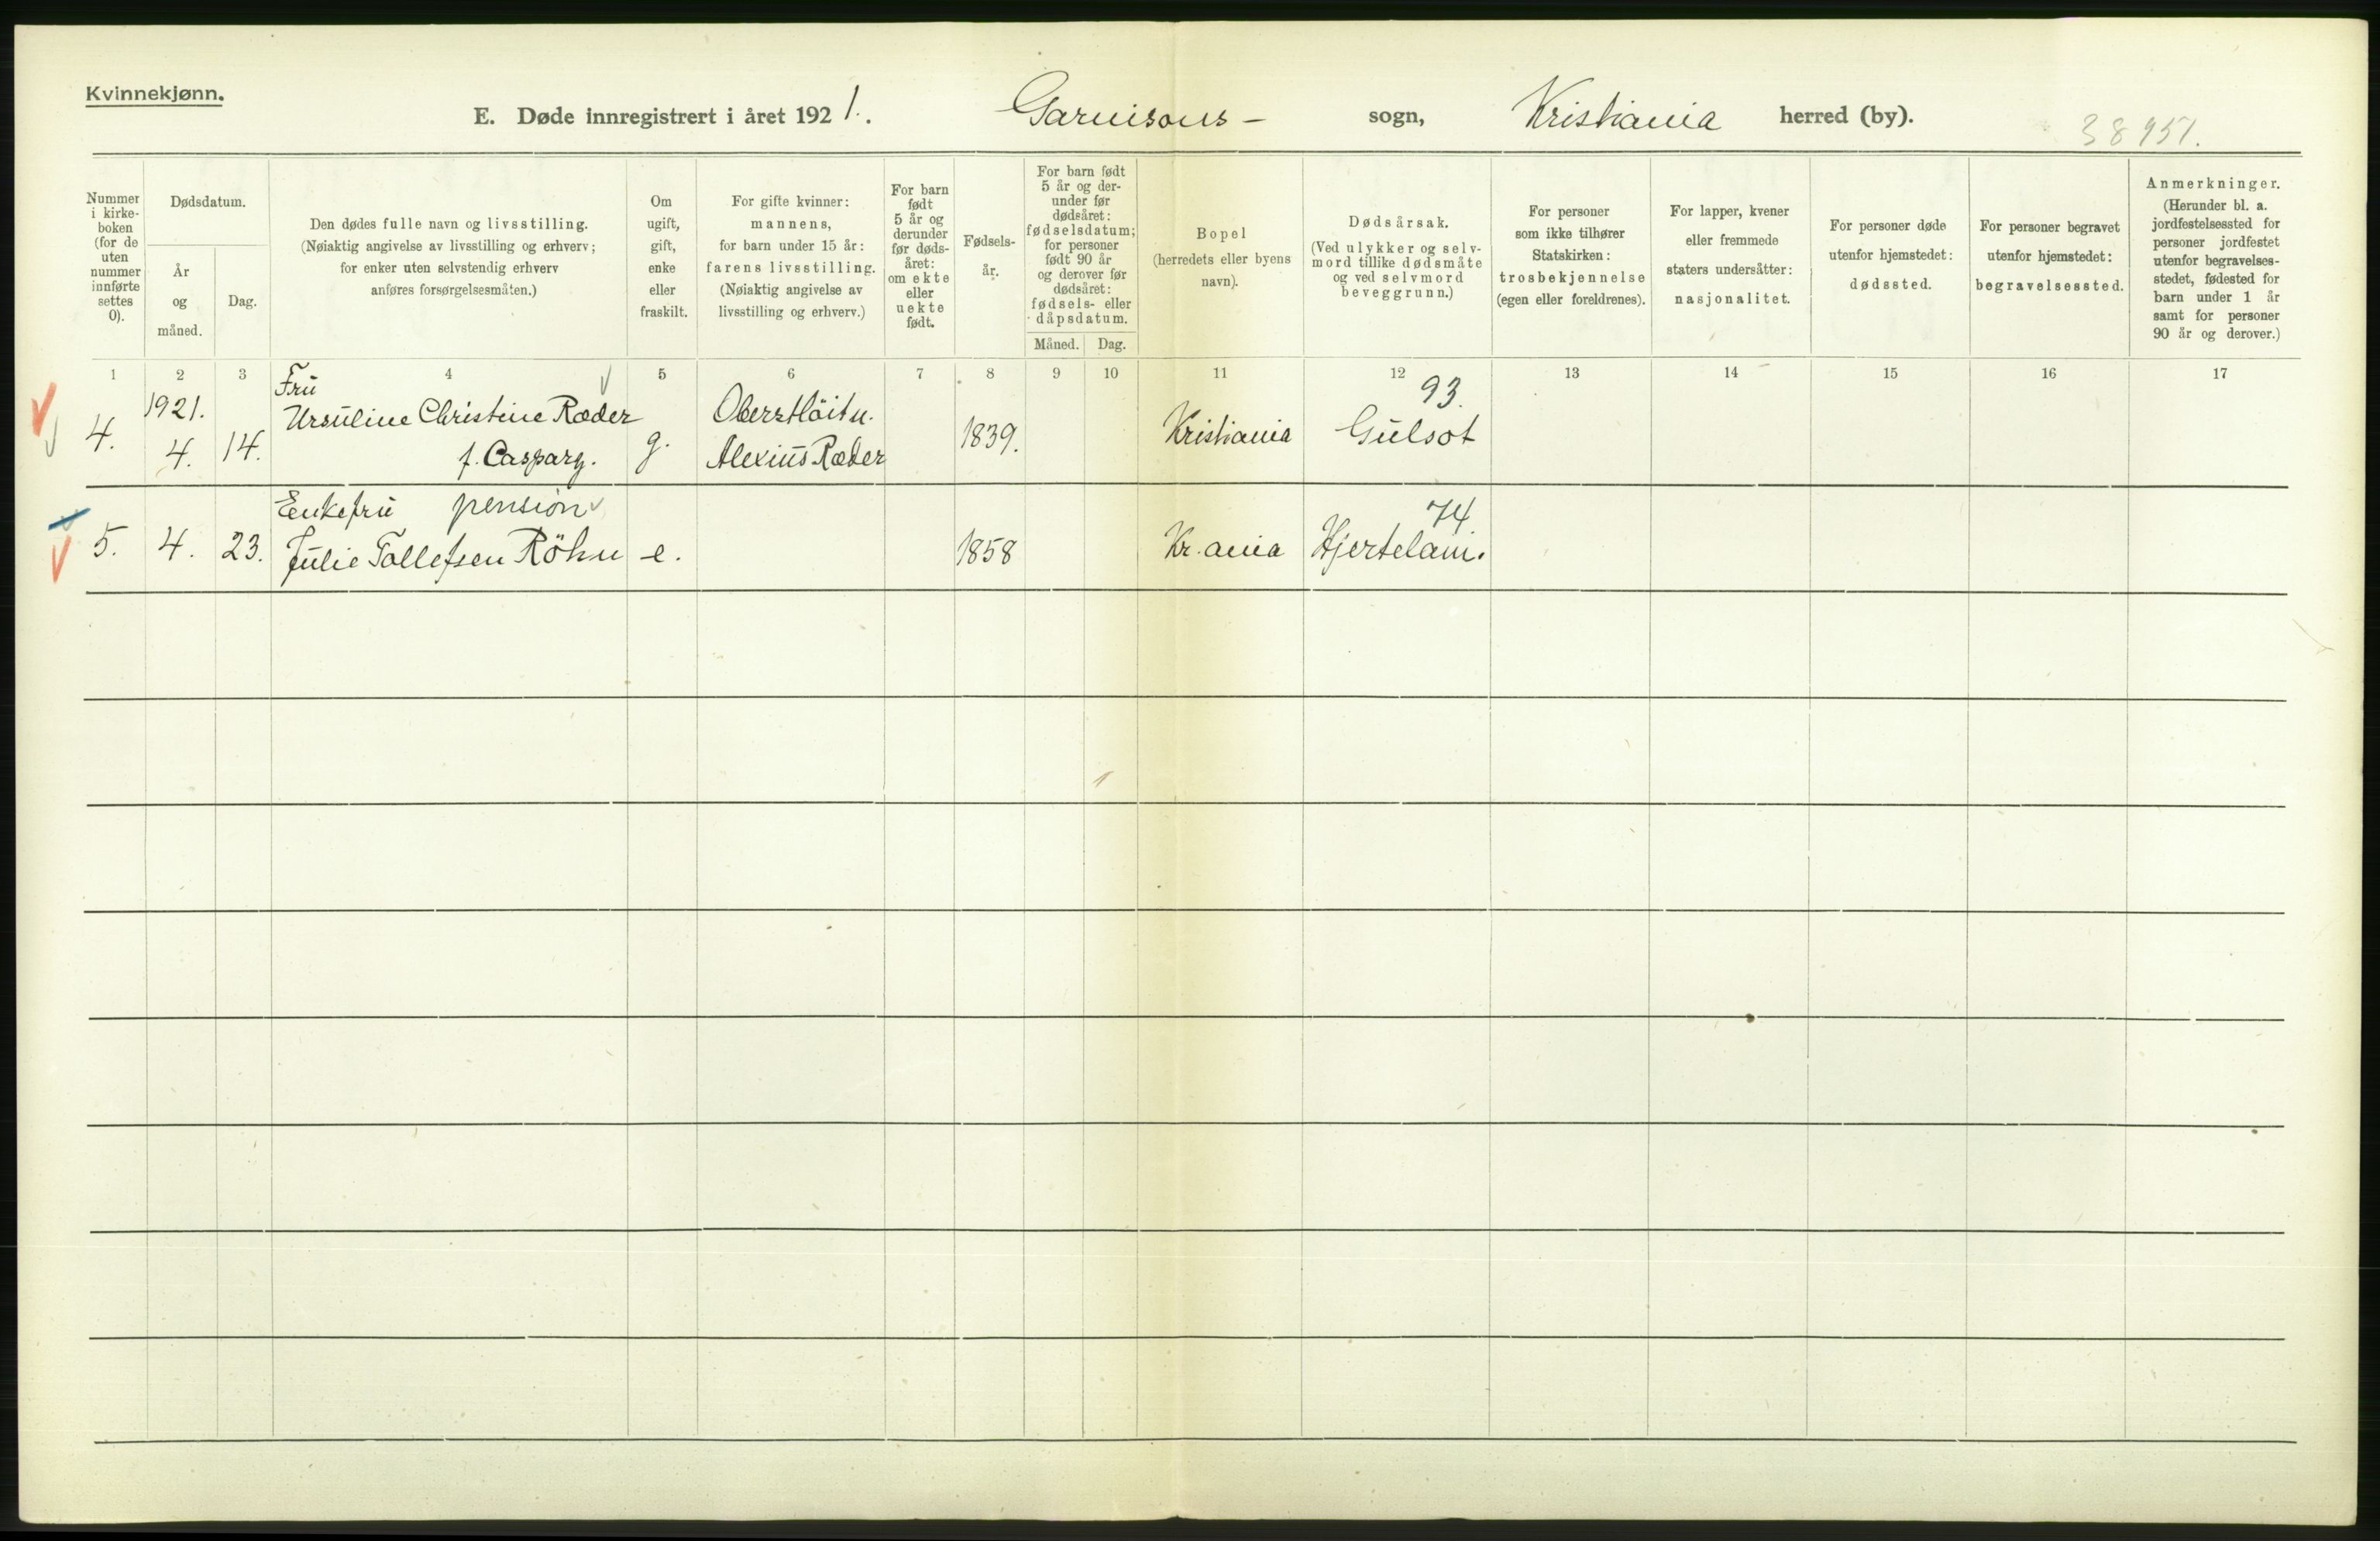 Kvinnekjønn.
E. Døde innregistrert i året 1921. Garnisons- sogn, Kristiania herred (by).
38951.
Nummer i kirke-
boken
(for de
uten
nummer
innførte
settes
0).
Dødsdatum.
År
og
måned.
Dag.
Den dødes fulle navn og livsstilling.
(Nøiaktig angivelse av livsstilling og erhverv;
for enker uten selvstendig erhverv
anføres forsørgelsesmåten.)
Om
ugift,
gift,
enke
eller
fraskilt.
For gifte kvinner:
mannens,
for barn under 15 år:
farens livsstilling.
(Nøiaktig angivelse av
livsstilling og erhverv.)
For barn
født
5 år og
derunder
før døds-
året:
om ekte
eller
uekte
født.
Fødsels-
år.
For barn født
5 år og der-
under før
dødsåret:
fødselsdatum;
for personer
født 90 år
og derover før
dødsåret:
fødsels- eller
dåpsdatum.
Måned. Dag.
Bopel
(herredets eller byens
navn).
Dødsårsak.
(Ved ulykker og selv-
mord tillike dødsmåte
og ved selvmord
beveggrunn.)
For personer
som ikke tilhører
Statskirken:
trosbekjennelse
(egen eller foreldrenes).
For lapper, kvener
eller fremmede
staters undersåtter:
nasjonalitet.
For personer døde
utenfor hjemstedet:
dødssted.
For personer begravet
utenfor hjemstedet:
begravelsessted.
Anmerkninger.
(Herunder bl. a.
jordfestelsessted for
personer jordfestet
utenfor begravelses-
stedet, fødested for
barn under 1 år
samt for personer
90 år og derover.)
1 2 3 4 5 6 7 8 9 10 11 12 13 14 15 16 17
Fru 93.
1921. Ursuline Christine Ræder Oberstlöitn.
4. 4. 14. f. Casparg. g. Alexius Ræder 1839. Kristiania Gulsot
Enkefru pension 74.
5. 4. 23. Julie Tollefsen Röhn e. 1858 Kr.ania Hjertelam.